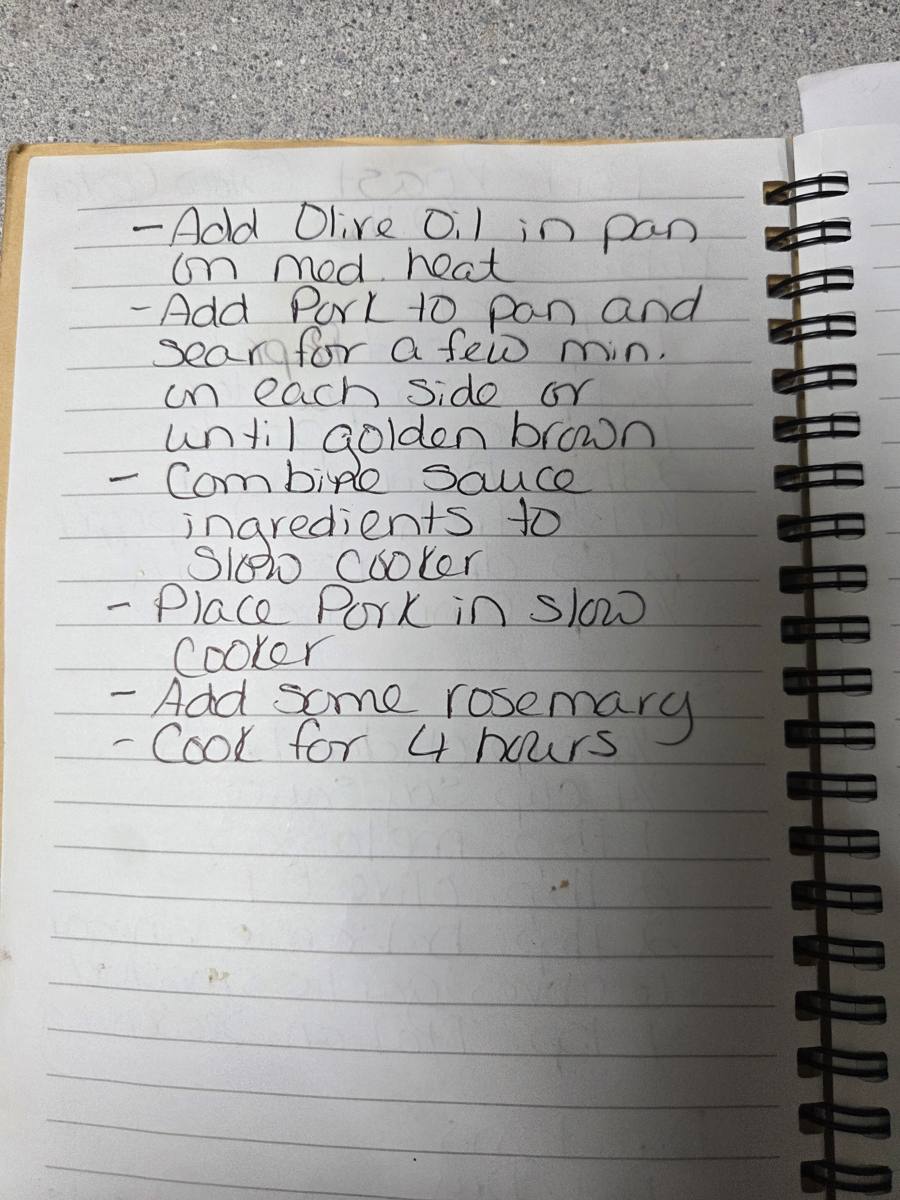 - Add Olive Oil in pan
on med. heat
- Add Pork to pan and
sear for a few min.
on each side or
until golden brown
- Combine sauce
ingredients to
Slow cooker
- Place Pork in slow
cooker
- Add some rosemary
- Cook for 4 hours